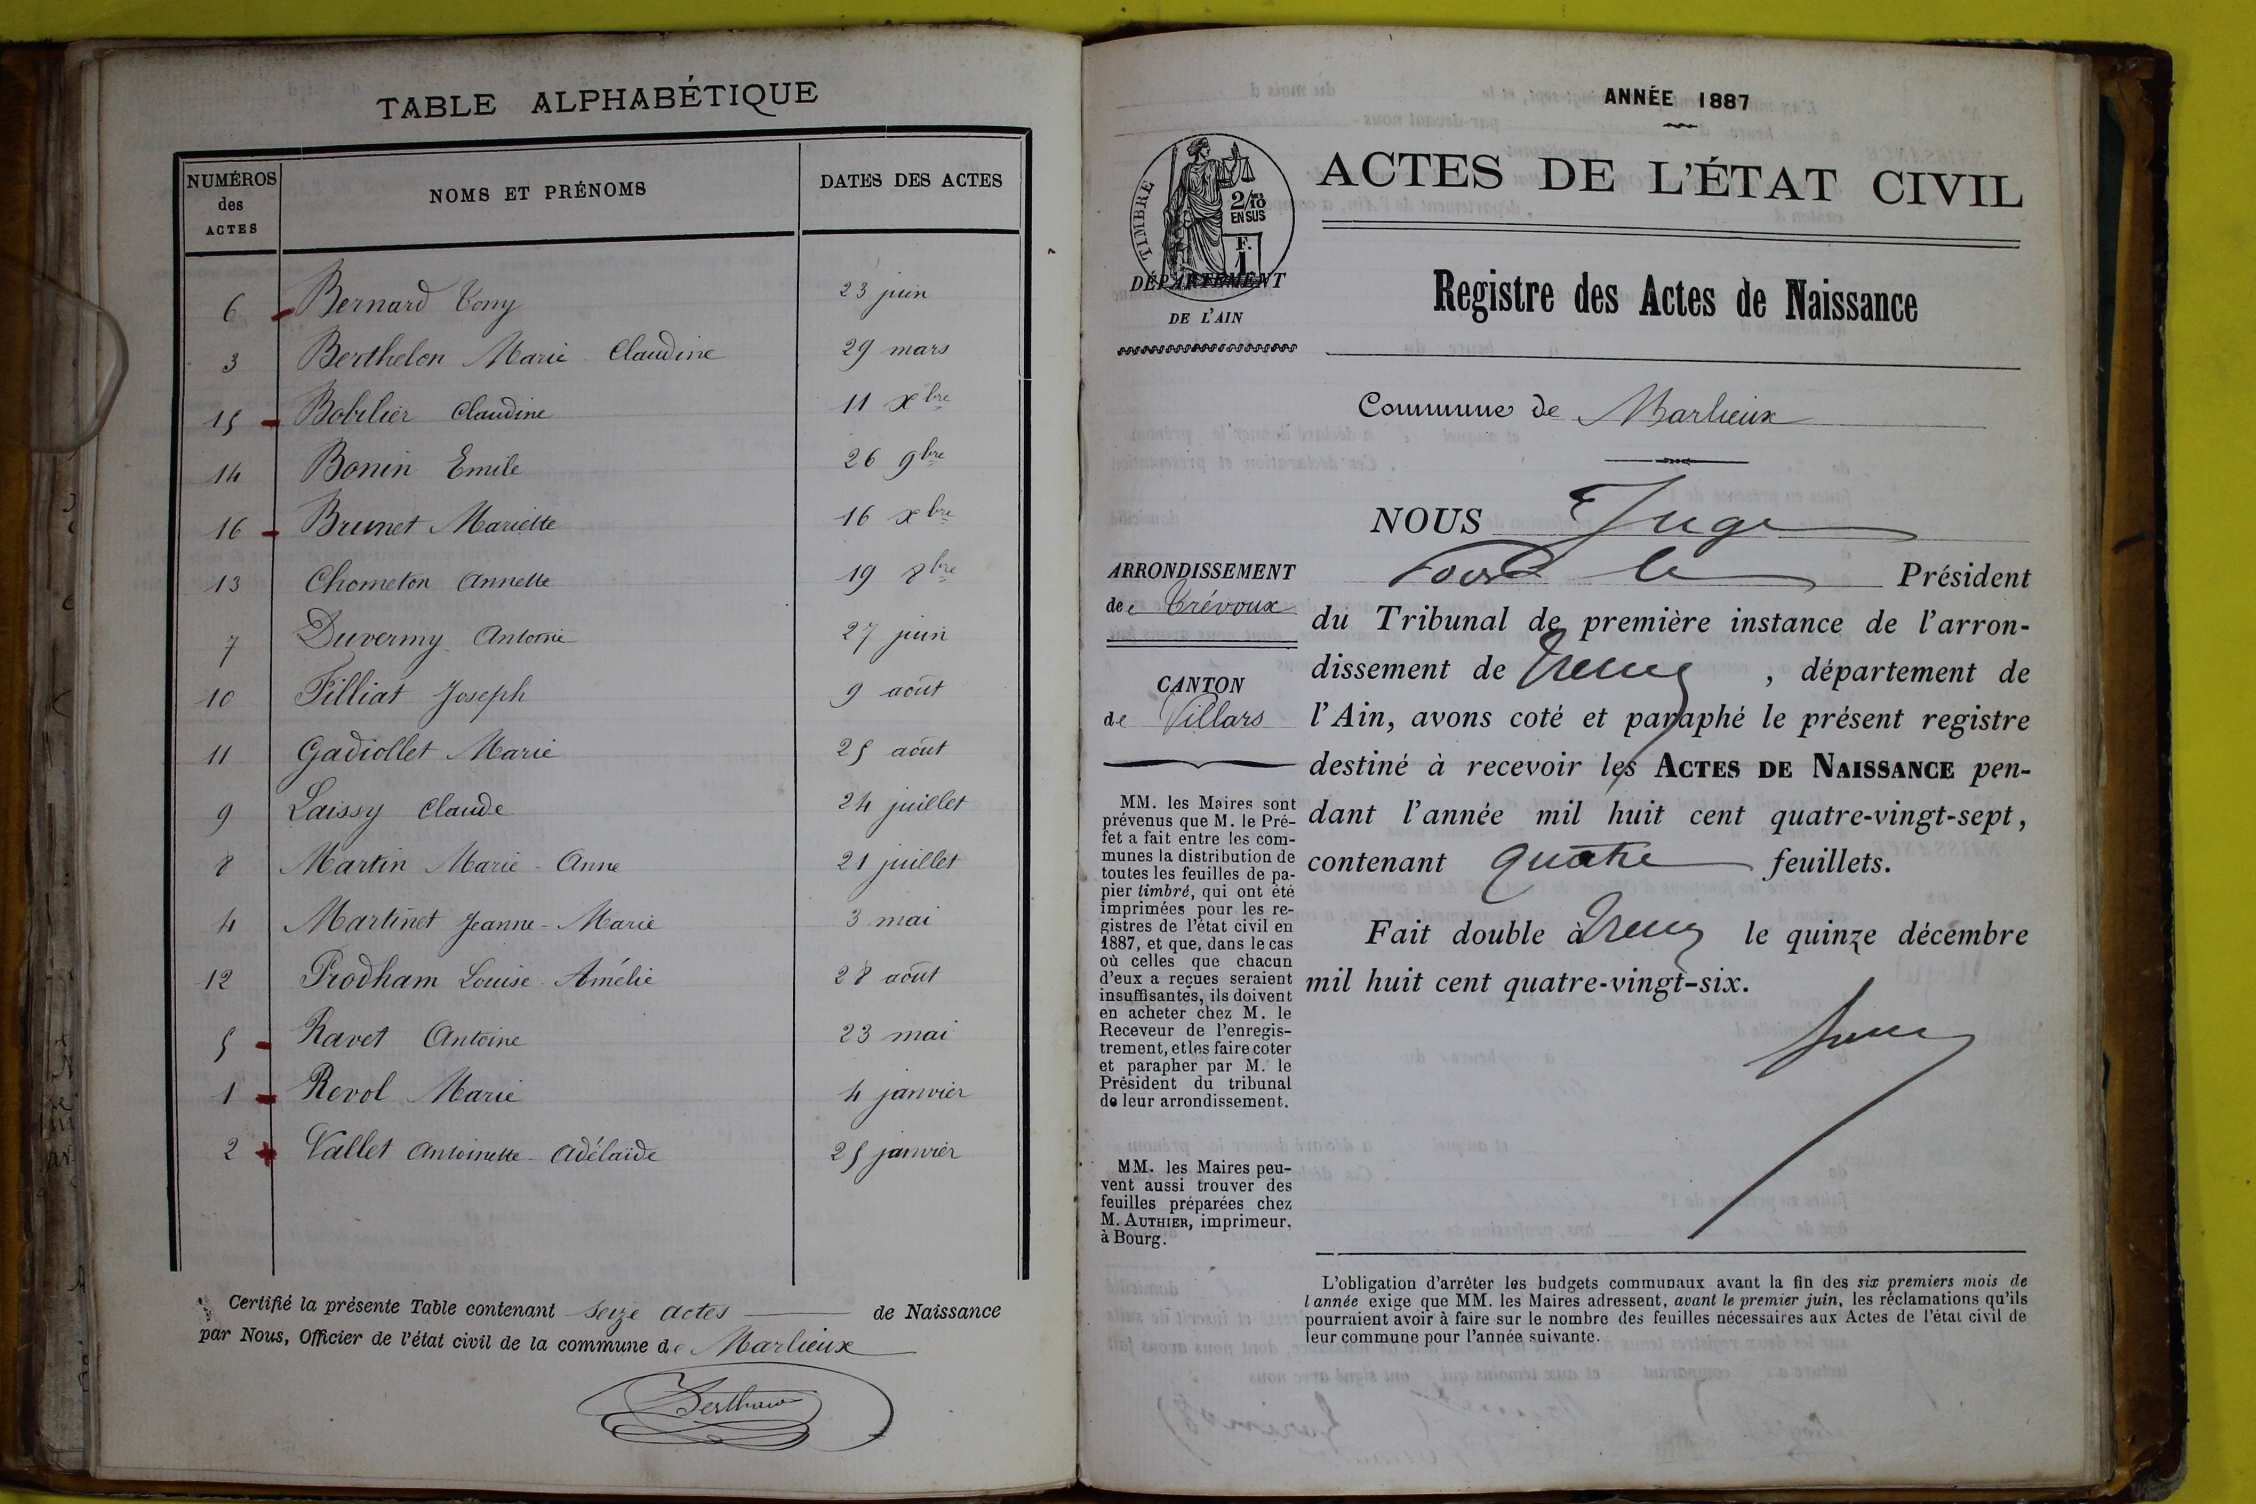 TABLE ALPHABÉTIQUE
NUMÉROS des ACTES NOMS ET PRÉNOMS DATES DES ACTES
6 Bernard Tony 23 juin
3 Berthelon Marie-Claudine 29 mars
15 Bobilier Claudine 11 Xbre
14 Bonin Emile 26 9bre
16 Brunet Mariette 16 Xbre
13 Chometon Annette 19 8bre
7 Duvermy Antoine 27 juin
10 Filliat Joseph 9 août
11 Gadiollet Marie 25 août
9 Laissy Claude 24 juillet
8 Martin Marie-Anne 21 juillet
4 Martinet Jeanne-Marie 3 mai
12 Prodham Louise-Amélie 28 août
5 Ravet Antoine 23 mai
1 Revol Marie 4 janvier
2 Vallet Antoinette-Adélaïde 25 janvier
Certifié la présente Table contenant seize actes de Naissance
par Nous, Officier de l'état civil de la commune de Marlieux
ANNÉE 1887
TIMBRE
2/10
EN SUS
F.
1
DÉPARTEMENT
DE L'AIN
ACTES DE L'ÉTAT CIVIL
Registre des Actes de Naissance
Commune de Marlieux
ARRONDISSEMENT
de Trévoux
CANTON
de Villars
MM. les Maires sont
prévenus que M. le Pré-
fet a fait entre les com-
munes la distribution de
toutes les feuilles de pa-
pier timbré, qui ont été
imprimées pour les re-
gistres de l'état civil en
1887, et que, dans le cas
où celles que chacun
d'eux a reçues seraient
insuffisantes, ils doivent
en acheter chez M. le
Receveur de l'enregis-
trement, et les faire coter
et parapher par M. le
Président du tribunal
de leur arrondissement.
MM. les Maires peu-
vent aussi trouver des
feuilles préparées chez
M. AUTHIER, imprimeur,
à Bourg.
NOUS Juge
pour le Président
du Tribunal de première instance de l'arron-
dissement de Trévoux, département de
l'Ain, avons coté et paraphé le présent registre
destiné à recevoir les ACTES DE NAISSANCE pen-
dant l'année mil huit cent quatre-vingt-sept,
contenant quatre feuillets.
Fait double à Trévoux le quinze décembre
mil huit cent quatre-vingt-six.
L'obligation d'arrêter les budgets communaux avant la fin des six premiers mois de
l'année exige que MM. les Maires adressent, avant le premier juin, les réclamations qu'ils
pourraient avoir à faire sur le nombre des feuilles nécessaires aux Actes de l'état civil de
leur commune pour l'année suivante.